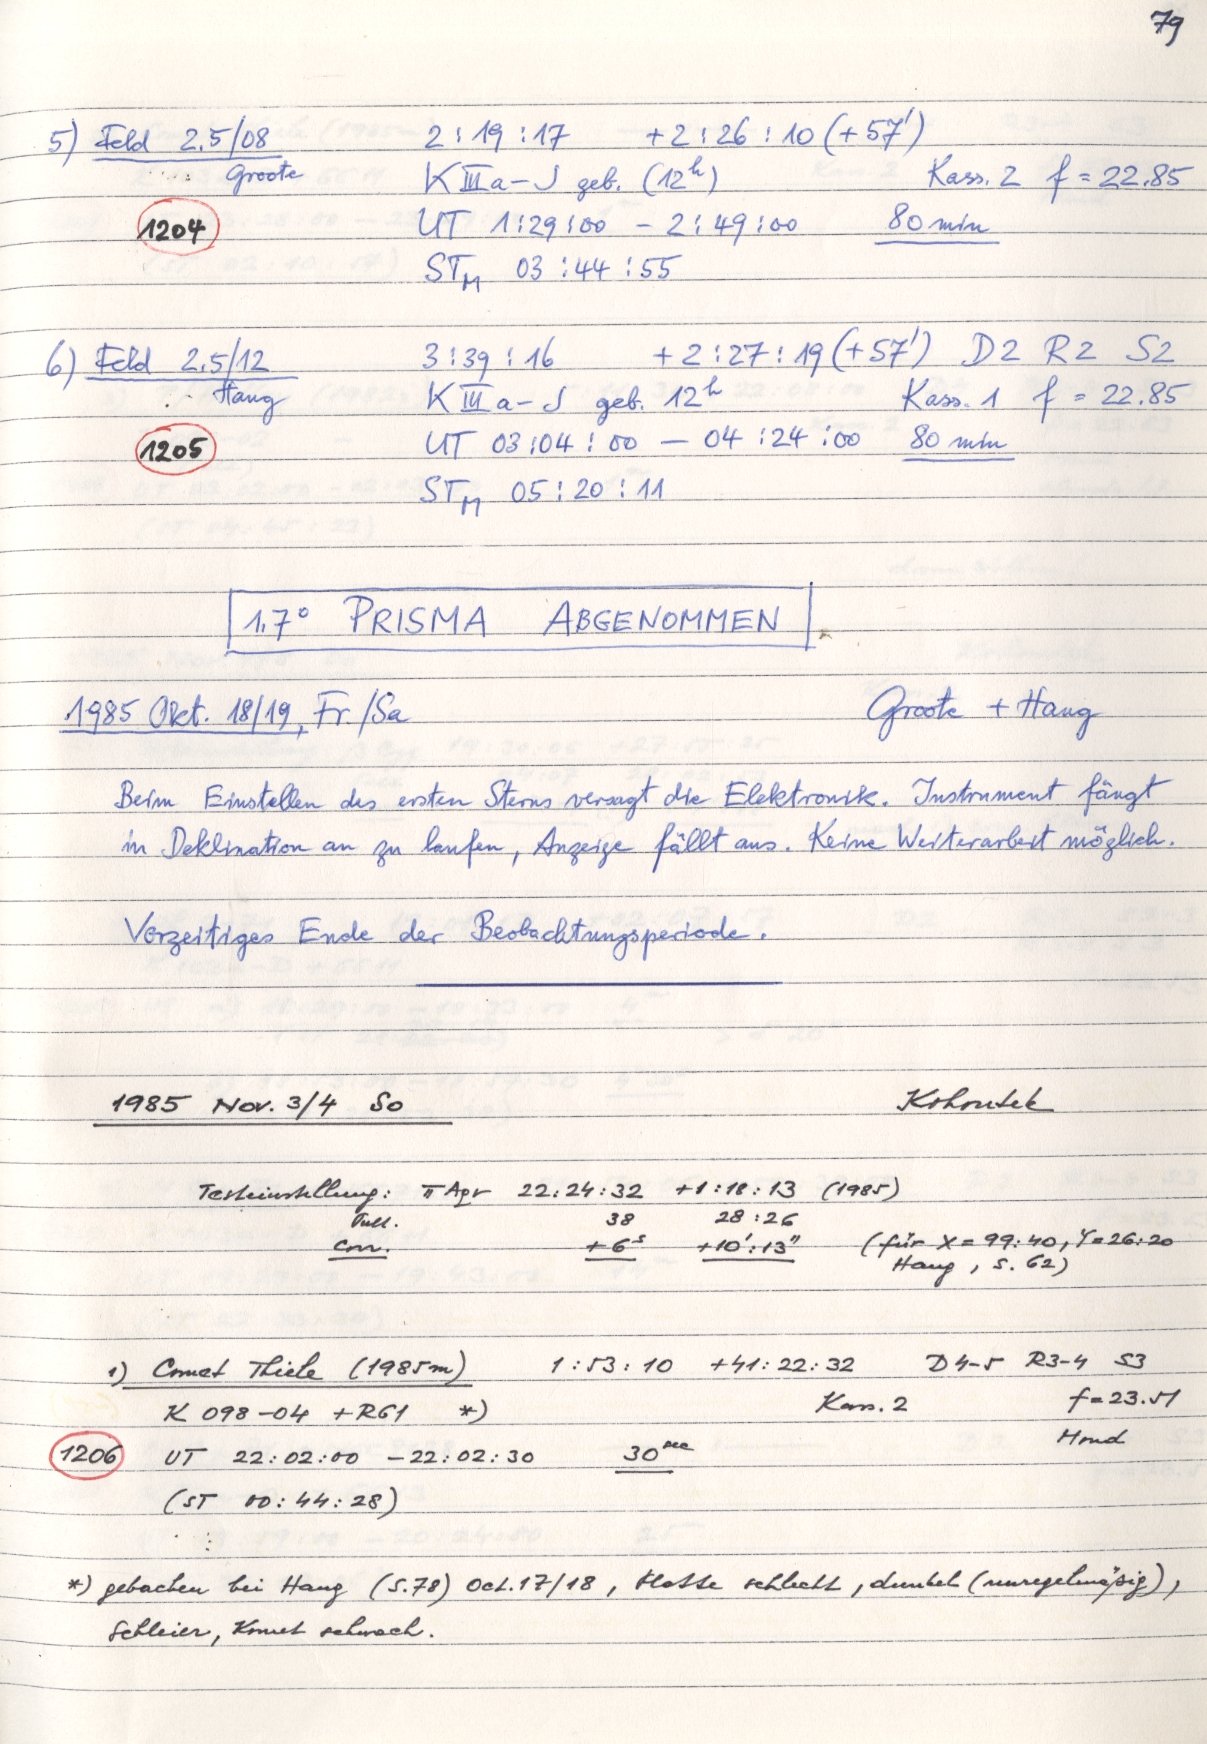 79
5) Feld 2.5/08 2:19:17 +2:26:10 (+57')
Groote K III a-J geb. (12h) Kass. 2 f = 22.85
1204 UT 1:29:00 - 2:49:00 80 min
STM 03:44:55
6) Feld 2.5/12 3:39:16 +2:27:19 (+57') D2 R2 S2
Haug K III a-J geb. 12h Kass. 1 f = 22.85
1205 UT 03:04:00 - 04:24:00 80 min
STM 05:20:11
1.7° PRISMA ABGENOMMEN
1985 Okt. 18/19, Fr/Sa Groote + Haug
Beim Einstellen des ersten Sterns versagt die Elektronik. Instrument fängt
in Deklination an zu laufen, Anzeige fällt aus. Keine Weiterarbeit möglich.
Vorzeitiges Ende der Beobachtungsperiode.
1985 Nov. 3/4 So Kohoutek
Testeinstellung: π Aqr 22:24:32 +1:18:13 (1985)
38 28:26
Corr. +6s +10':13" (für X = 99:40, Y = 26:20
Haug, S. 62)
1) Comet Thiele (1985m) 1:53:10 +41:22:32 D4-5 R3-4 S3
K 098-04 + RG1 *) Kass. 2 f = 23.51
Mond
1206 UT 22:02:00 - 22:02:30 30sec
(ST 00:44:28)
*) gebacken bei Haug (S. 78) Oct. 17/18, Platte schlecht, dunkel (unregelmäßig),
Schleier, Komet schwach.